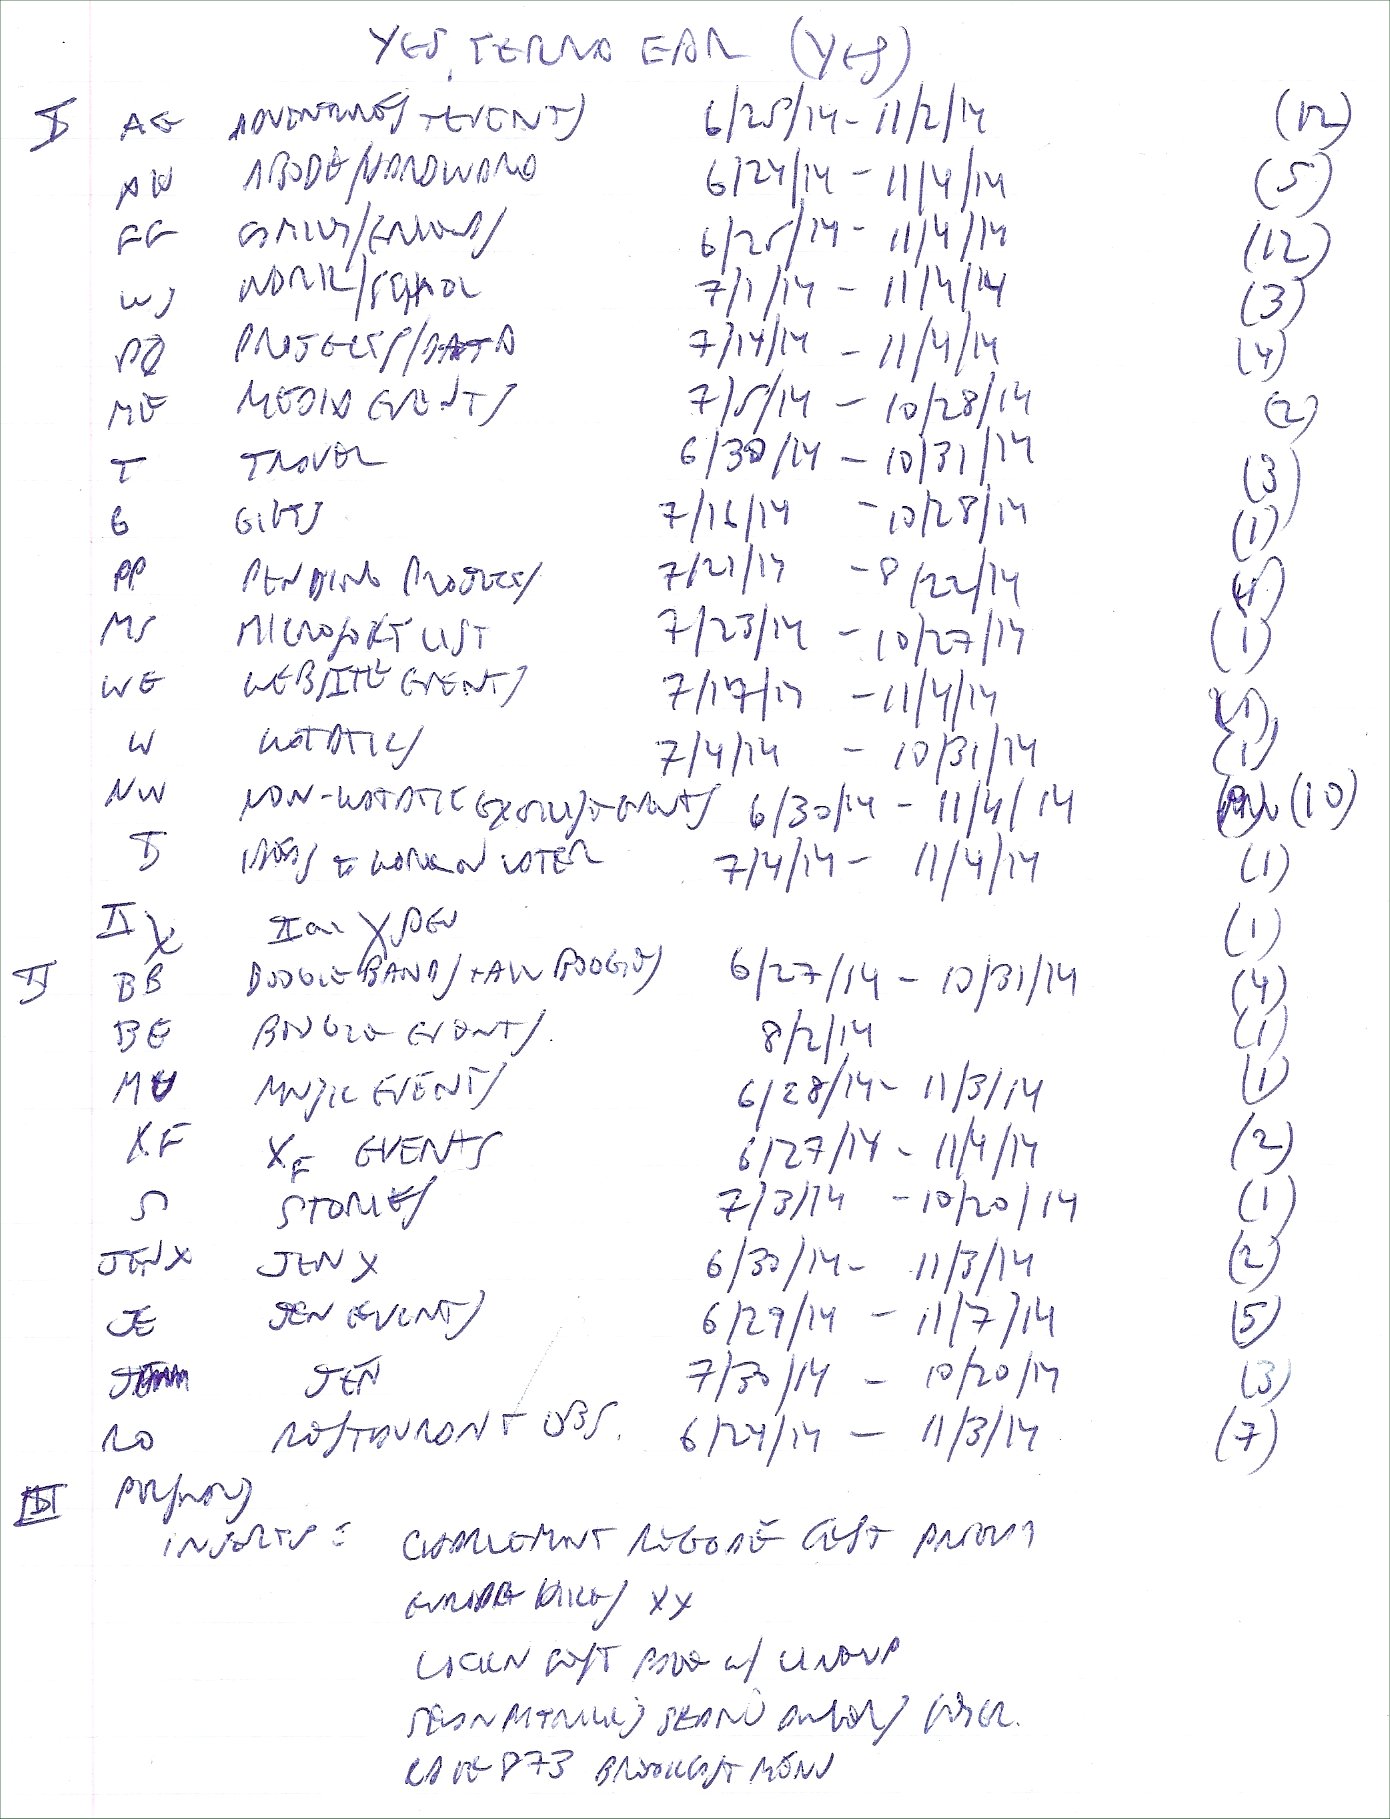 YES, TERRA EAR (YES)
I AE ADVENTURES + EVENTS 6/25/14 - 11/2/14 (12)
AH ABODE/HARDWARE 6/24/14 - 11/4/14 (5)
FF FAMILY/FRIENDS 6/25/14 - 11/4/14 (12)
WS WORK/SCHOOL 7/1/14 - 11/4/14 (3)
PD PROJECTS/DATA 7/14/14 - 11/4/14 (4)
ME MEDIA EVENTS 7/5/14 - 10/28/14 (2)
T TRAVEL 6/30/14 - 10/31/14 (3)
G GIFTS 7/16/14 - 10/28/14 (1)
PP PENDING PROJECTS 7/21/14 - 8/22/14
MS MICROSOFT LIST 7/23/14 - 10/27/14 (1)
WE WEBSITE EVENTS 7/17/14 - 11/4/14
W 7/4/14 - 10/31/14 (1)
NW 6/30/14 - 11/4/14 (10)
I IDEAS + WORK ON LATER 7/4/14 - 11/4/14 (1)
IIX (1)
II BB BOOGIE BANDS + AW BOOGIES 6/27/14 - 10/31/14 (4)
BE BOOGIE EVENTS 8/2/14 (1)
MU MUSIC EVENTS 6/28/14 - 11/3/14 (1)
XF XF EVENTS 6/27/14 - 11/4/14 (2)
S STORIES 7/3/14 - 10/20/14 (1)
JENX JENX 6/30/14 - 11/3/14 (2)
JE JEN EVENTS 6/29/14 - 11/7/14 (5)
JEN 7/30/14 - 10/20/14 (3)
RO RESTAURANT OBS. 6/24/14 - 11/3/14 (7)
III
INSERTS: CHARLEMONT REGGAE FEST
EUROPE HIKES XX
LOCKN FEST PAGE W/ LINEUP
SEAN
RAVE 873 BROOKLYN MENU